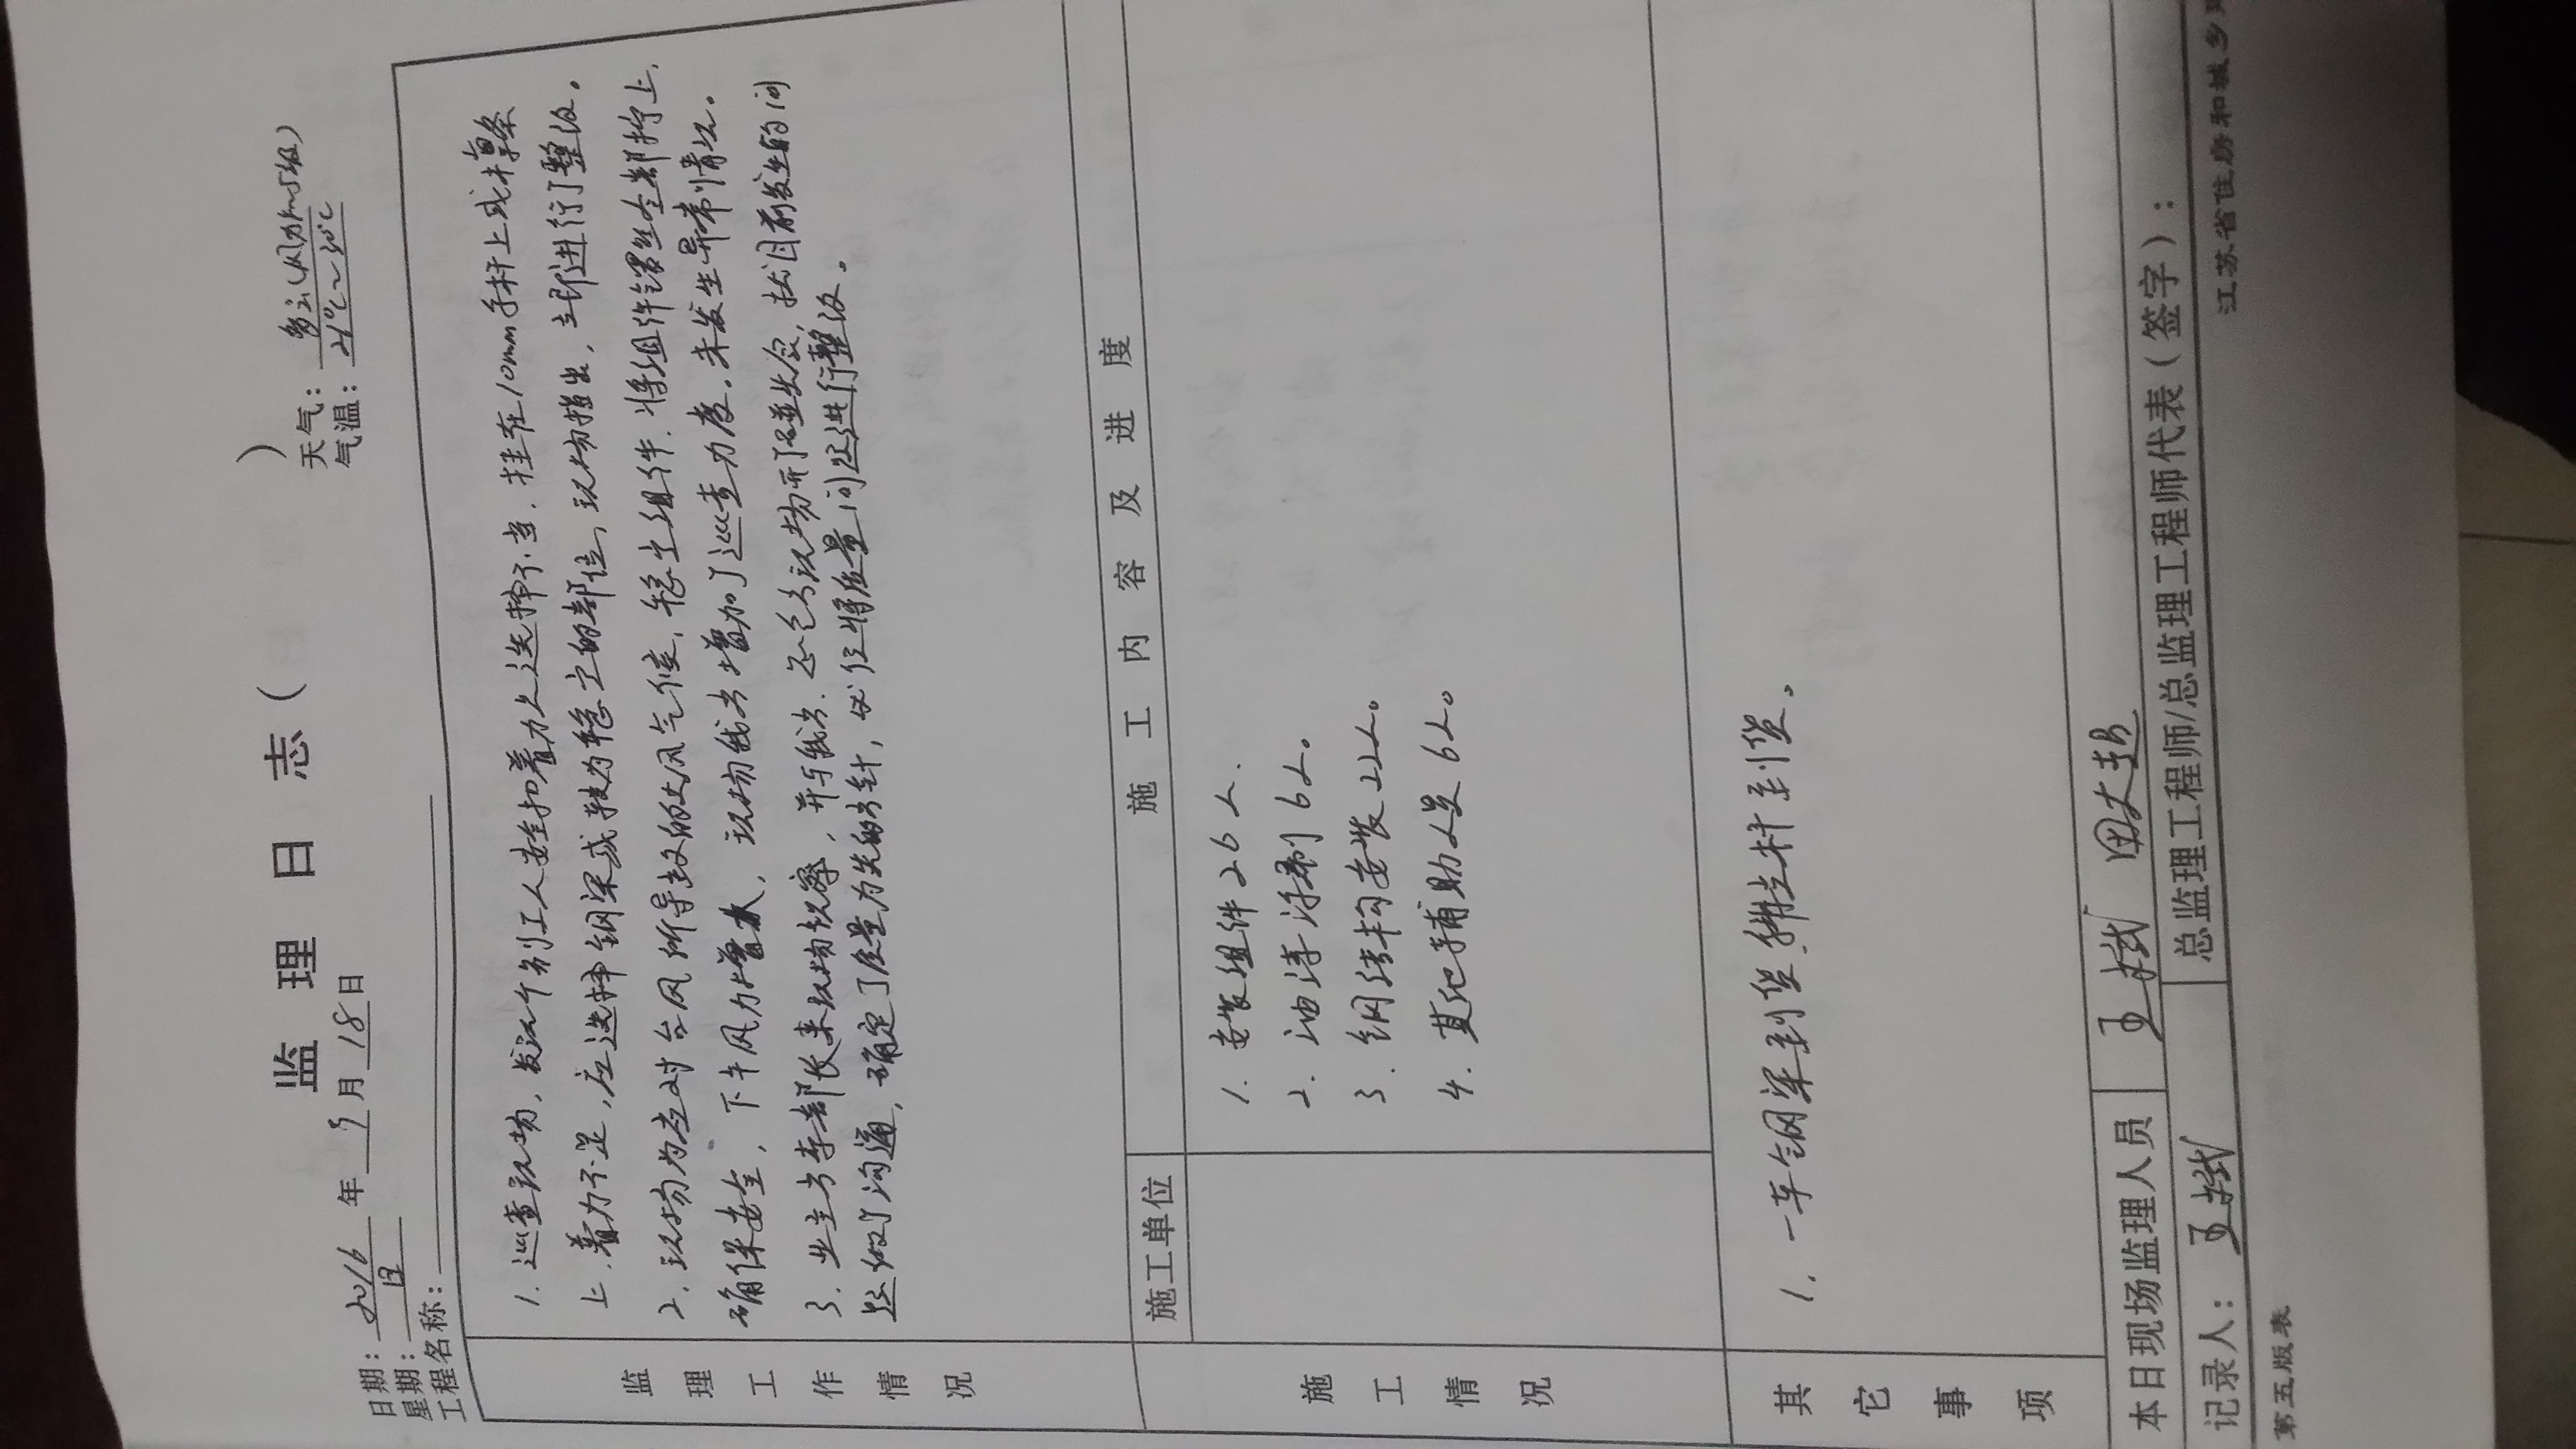 监理日志（ ）
日期：2016年9月18日 天气：多云（风力4~5级）
星期：日 气温：21℃~30℃
工程名称：
监理工作情况
1. 巡查现场，发现个别工人安全扣着力点选择不当，挂在10mm手杆上或未靠条
上，着力不足，应选择钢梁或较为稳定的部位，现场指出，立即进行了整改。
2. 现场为应对台风所导致的大风气候，稳定组件，将组件镙丝全部拧上，
确保安全，下午风力增大，现场我方增加了巡查力度，未发生异常情况。
3. 业主方李部长来现场视察，并与我方、总包方现场开了碰头会，就目前发生的问
题做了沟通，确定了质量为先的方针，必须将质量问题进行整改。
施工单位 施工内容及进度
施工情况
1. 安装组件26人.
2. 油漆涂刷6人。
3. 钢结构安装22人。
4. 其他辅助人员6人。
其它事项
1. 一车钢梁到货，斜立杆到货。
本日现场监理人员 王斌 田大超
记录人：王斌 总监理工程师/总监理工程师代表（签字）：
第五版表 江苏省住房和城乡